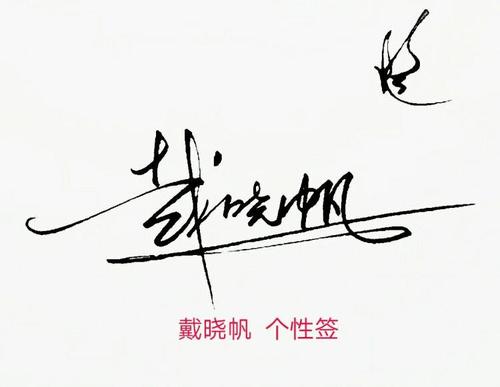 戴晓帆
戴晓帆 个性签